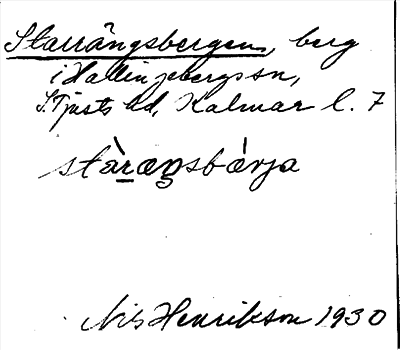 Starrängsbergen, berg
i Hallingebergs sn,
S. Tjusts hd, Kalmar l. 7
stàræŋsbárja
Nils Henrikson 1930